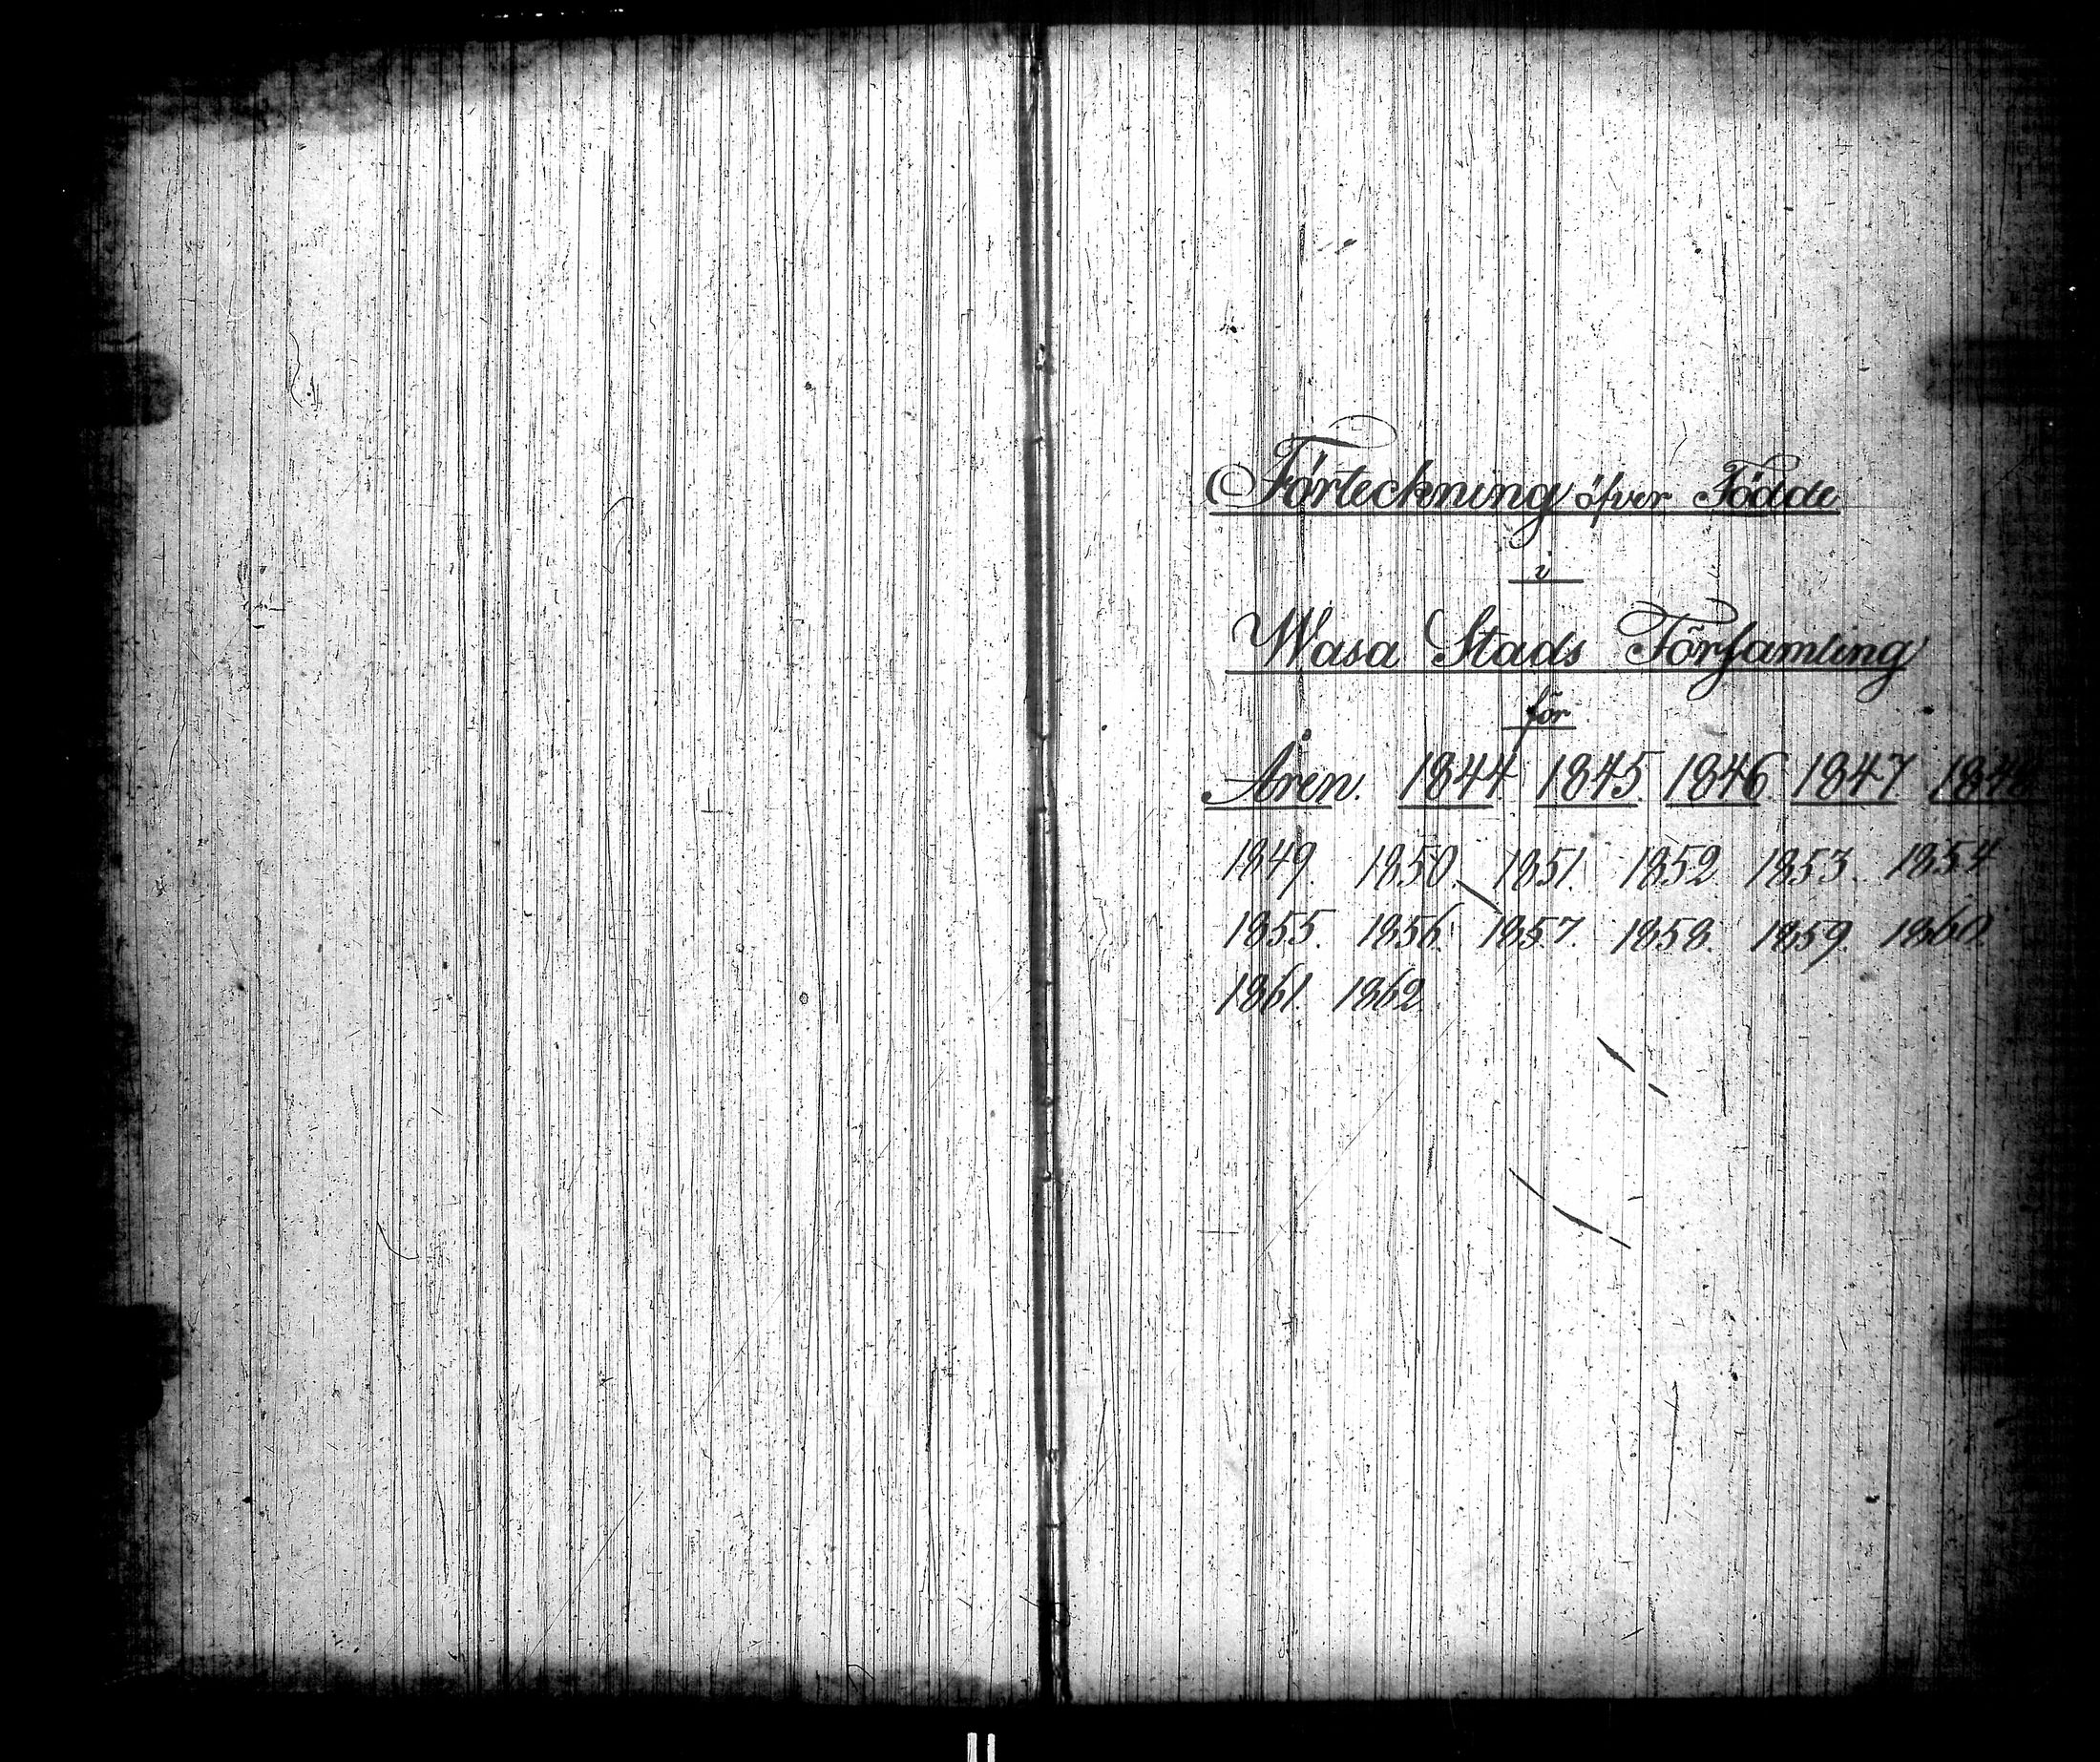 Förteckning öfver Födde
i
Wasa Stads Församling
för
Åren. 1844. 1845. 1846. 1847 1848
1849. 1850. 1851. 1852 1853. 1854
1855. 1856. 1857. 1858. 1859. 1860.
1861. 1862.